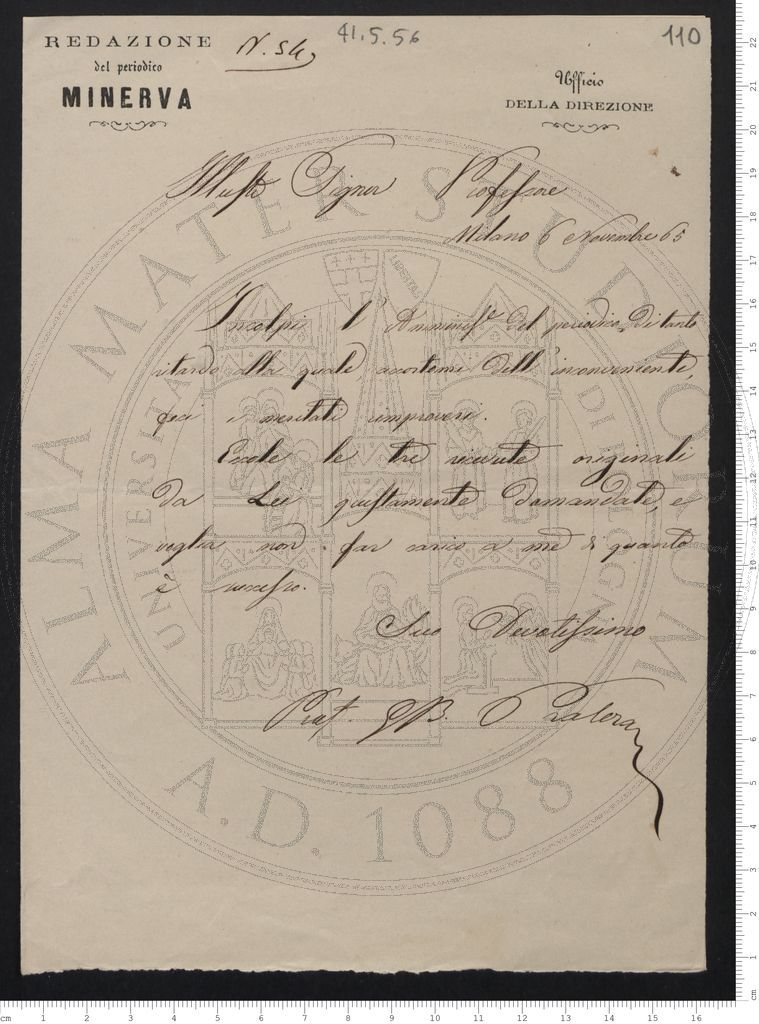 REDAZIONE
del periodico
MINERVA
N. 54,
41.5.56
110
Ufficio
DELLA DIREZIONE
Illustr Signor Professore
Milano 6 Novembre 65
Incolpi l'Amminist. del periodico di tanto
ritardo alla quale, accortomi dell'inconveniente,
feci i meritati improveri.
Eccole le tre ricevute originali
da Lei giustamente domandate, e
voglia non far carico a me di quanto
è successo.
Suo Devotissimo
Prof. GB. Pratera
ALMA MATER STUDIORUM
UNIVERSITÀ DI BOLOGNA
A.D. 1088